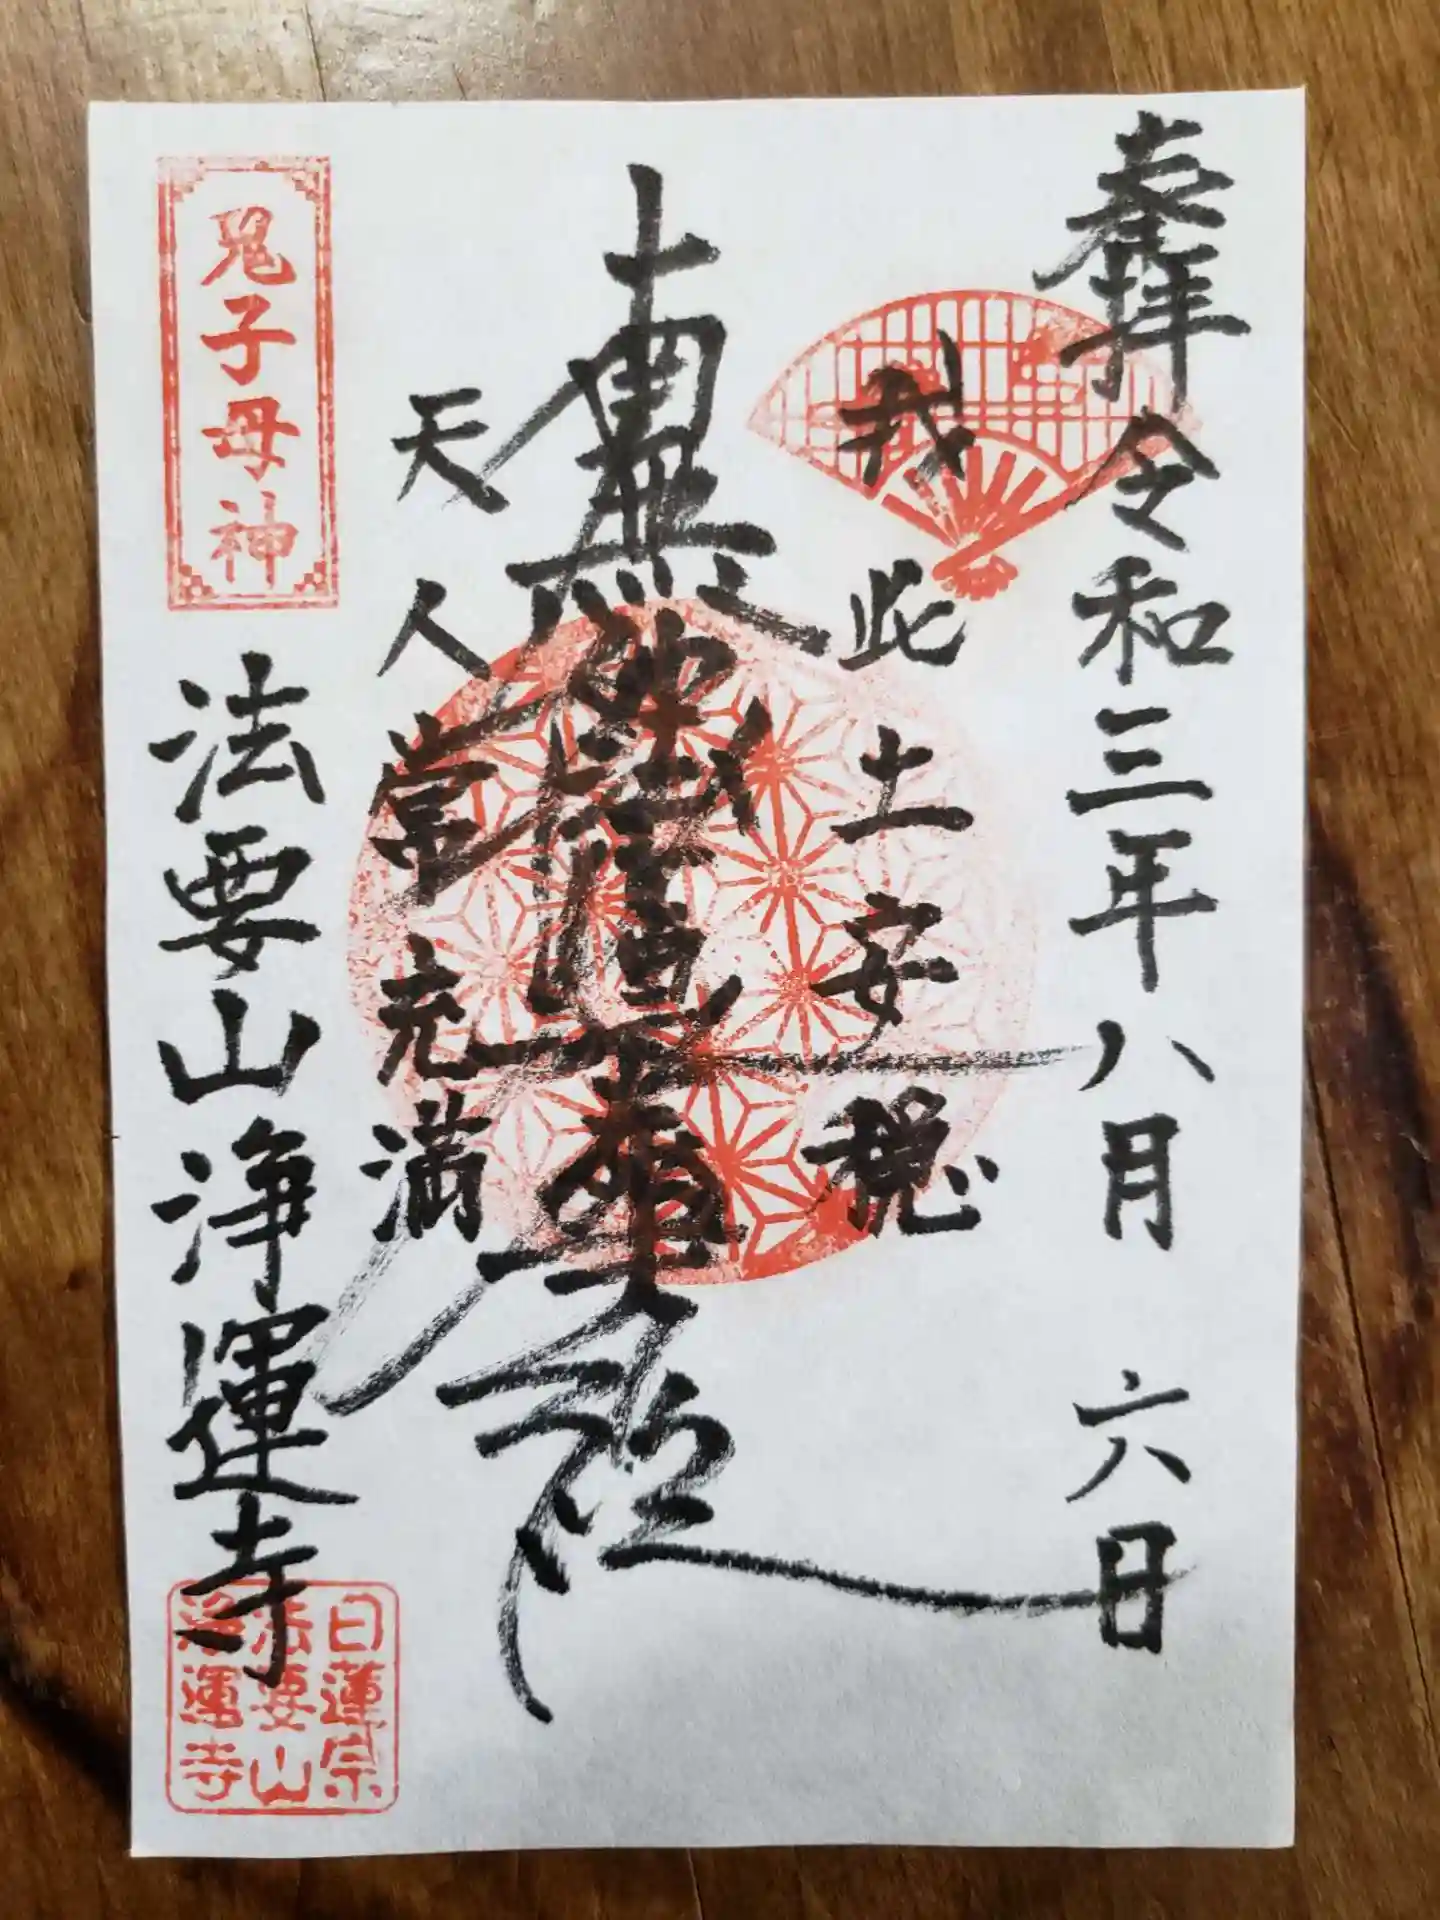 奉拝 令和三年八月六日
我此土安穏
南無妙法蓮華経
天人常充満
鬼子母神
法要山浄運寺
日蓮宗
法要山
浄運寺